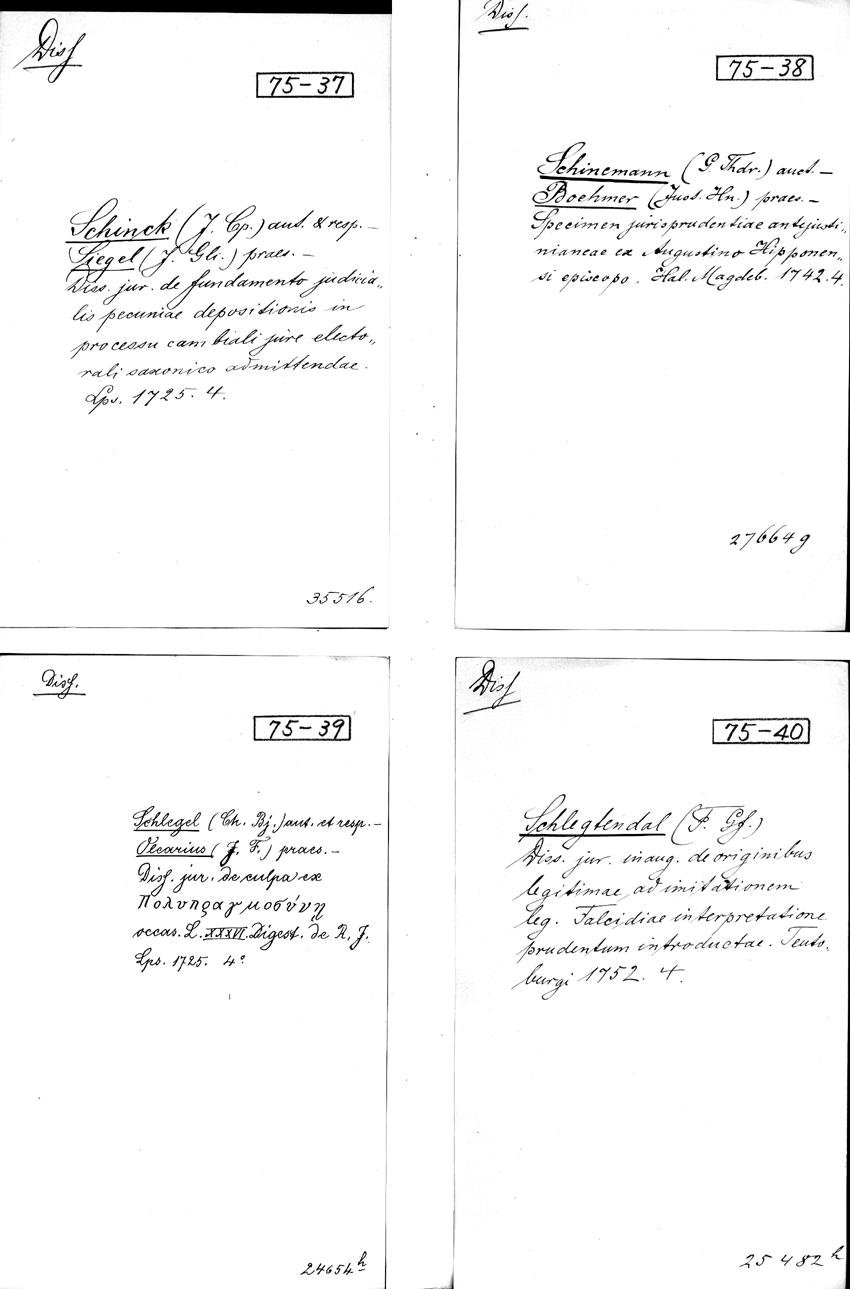 Diss
75-37
Schinck (J. Cp.) aut. & resp. –
Siegel (J. Gli.) praes. –
Diss. jur. de fundamento judicia„
lis pecuniae depositionis in
processu cambiali jure electo„
rali saxonico admittendae.
Lps. 1725. 4.
35516.
Diss.
75-38
Schinemann (G. Thdr.) auct. –
Boehmer (Just. Hn.) praes. –
Specimen jurisprudentiae antejusti„
nianeae ex Augustino Hipponen„
si episcopo. Hal. Magdeb. 1742. 4.
27664 g
Diss.
75-39
Schlegel (Ch. Bj.) aut. et resp. –
Olearius (J. F.) praes. –
Diss. jur. de culpa ex
Πολυπραγμοσύνη
occas. L. XXXVI. Digest. de R. J.
Lps. 1725. 4°
24654 h
Diss
75-40
Schlegtendal (F. Gf.)
Diss. jur. inaug. de originibus
legitimae, ad imitationem
leg. Falcidiae interpretatione
prudentum introductae. Teuto„
burgi 1752. 4.
25482 h